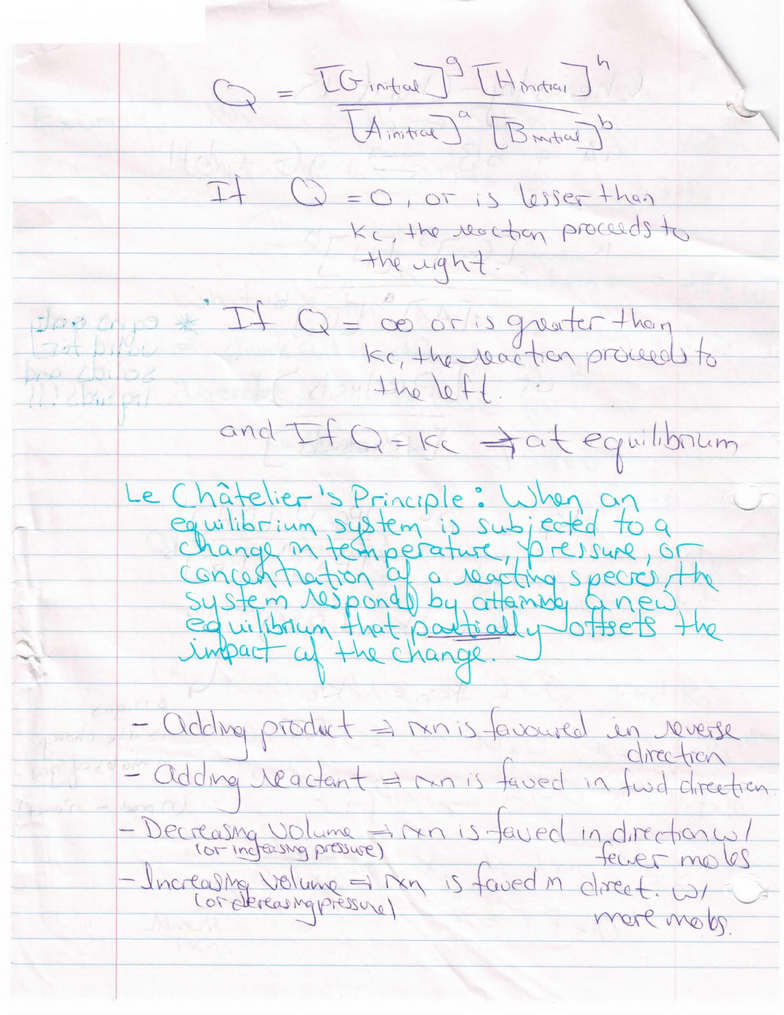 Q = [G initial]^g [H initial]^h / [A initial]^a [B initial]^b
If Q = 0, or is lesser than
Kc, the reaction proceeds to
the right.
If Q = ∞ or is greater than
Kc, the reaction proceeds to
the left.
and If Q = Kc ⇒ at equilibrium
Le Châtelier's Principle: When an
equilibrium system is subjected to a
change in temperature, pressure, or
concentration of a reacting species, the
system responds by attaining a new
equilibrium that partially offsets the
impact of the change.
- Adding product ⇒ rxn is favoured in reverse
direction
- Adding reactant ⇒ rxn is faved in fwd direction
- Decreasing volume ⇒ rxn is faved in direction w/
(or increasing pressure) fewer moles
- Increasing volume ⇒ rxn is faved in direct. w/
(or decreasing pressure) more moles.